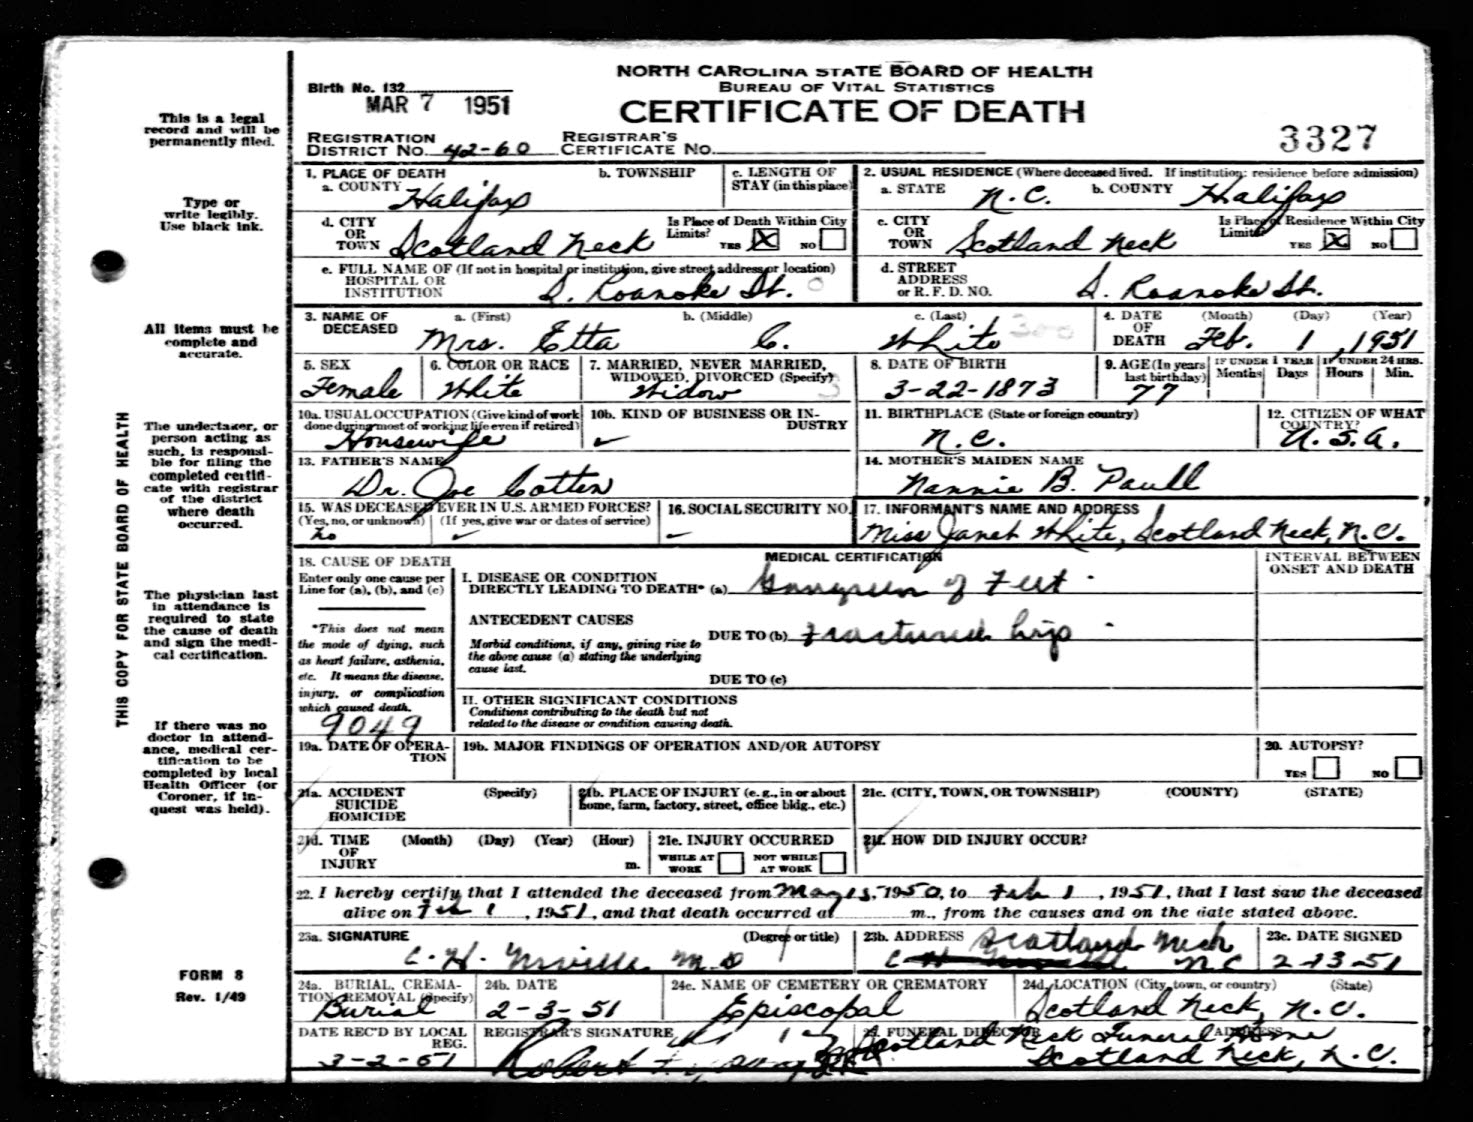 NORTH CAROLINA STATE BOARD OF HEALTH
BUREAU OF VITAL STATISTICS
CERTIFICATE OF DEATH
Birth No. 132
MAR 7 1951
3327
REGISTRATION DISTRICT NO. 42-60 REGISTRAR'S CERTIFICATE NO.
This is a legal
record and will be
permanently filed.
Type or
write legibly.
Use black ink.
All items must be
complete and
accurate.
The undertaker, or
person acting as
such, is responsi-
ble for filing the
completed certifi-
cate with registrar
of the district
where death
occurred.
The physician last
in attendance is
required to state
the cause of death
and sign the medi-
cal certification.
If there was no
doctor in attend-
ance, medical cer-
tification to be
completed by local
Health Officer (or
Coroner, if in-
quest was held).
FORM 8
Rev. 1/49
THIS COPY FOR STATE BOARD OF HEALTH
1. PLACE OF DEATH
a. COUNTY Halifax
b. TOWNSHIP
c. LENGTH OF STAY (in this place)
d. CITY OR TOWN Scotland Neck
Is Place of Death Within City Limits? YES X NO
e. FULL NAME OF (If not in hospital or institution, give street address or location)
HOSPITAL OR INSTITUTION S. Roanoke St.
2. USUAL RESIDENCE (Where deceased lived. If institution: residence before admission)
a. STATE N.C. b. COUNTY Halifax
c. CITY OR TOWN Scotland Neck
Is Place of Residence Within City Limits? YES X NO
d. STREET ADDRESS or R. F. D. NO. S. Roanoke St.
3. NAME OF DECEASED a. (First) Mrs. Etta b. (Middle) C. c. (Last) White
4. DATE OF DEATH (Month) (Day) (Year) Feb. 1, 1951
5. SEX Female
6. COLOR OR RACE White
7. MARRIED, NEVER MARRIED, WIDOWED, DIVORCED (Specify) Widow
8. DATE OF BIRTH 3-22-1873
9. AGE (In years last birthday) 77
IF UNDER 1 YEAR Months Days
IF UNDER 24 HRS. Hours Min.
10a. USUAL OCCUPATION (Give kind of work done during most of working life even if retired) Housewife
10b. KIND OF BUSINESS OR INDUSTRY
11. BIRTHPLACE (State or foreign country) N.C.
12. CITIZEN OF WHAT COUNTRY? U.S.A.
13. FATHER'S NAME Dr. Joe Cotten
14. MOTHER'S MAIDEN NAME Nannie B. Paull
15. WAS DECEASED EVER IN U.S. ARMED FORCES?
(Yes, no, or unknown) (If yes, give war or dates of service)
No
16. SOCIAL SECURITY NO.
17. INFORMANT'S NAME AND ADDRESS
Miss Janet White, Scotland Neck, N.C.
MEDICAL CERTIFICATION
INTERVAL BETWEEN ONSET AND DEATH
18. CAUSE OF DEATH
Enter only one cause per
Line for (a), (b), and (c)
*This does not mean
the mode of dying, such
as heart failure, asthenia,
etc. It means the disease,
injury, or complication
which caused death.
9049
I. DISEASE OR CONDITION
DIRECTLY LEADING TO DEATH* (a) Gangreen of Feet
ANTECEDENT CAUSES
Morbid conditions, if any, giving rise to
the above cause (a) stating the underlying
cause last.
DUE TO (b) Fractured hip
DUE TO (c)
II. OTHER SIGNIFICANT CONDITIONS
Conditions contributing to the death but not
related to the disease or condition causing death.
19a. DATE OF OPERATION
19b. MAJOR FINDINGS OF OPERATION AND/OR AUTOPSY
20. AUTOPSY? YES NO
21a. ACCIDENT SUICIDE HOMICIDE (Specify)
21b. PLACE OF INJURY (e. g., in or about home, farm, factory, street, office bldg., etc.)
21c. (CITY, TOWN, OR TOWNSHIP) (COUNTY) (STATE)
21d. TIME OF INJURY (Month) (Day) (Year) (Hour) m.
21e. INJURY OCCURRED
WHILE AT WORK NOT WHILE AT WORK
21f. HOW DID INJURY OCCUR?
22. I hereby certify that I attended the deceased from May 15, 1950, to Feb 1, 1951, that I last saw the deceased
alive on Feb 1, 1951, and that death occurred at m., from the causes and on the date stated above.
23a. SIGNATURE (Degree or title)
C. H. M.D
23b. ADDRESS Scotland Neck N C
23c. DATE SIGNED 2-13-51
24a. BURIAL, CREMATION, REMOVAL (Specify) Burial
24b. DATE 2-3-51
24c. NAME OF CEMETERY OR CREMATORY Episcopal
24d. LOCATION (City, town, or county) (State) Scotland Neck, N.C.
DATE REC'D BY LOCAL REG. 3-2-51
REGISTRAR'S SIGNATURE Robert
25. FUNERAL DIRECTOR ADDRESS
Scotland Neck Funeral Home
Scotland Neck, N.C.